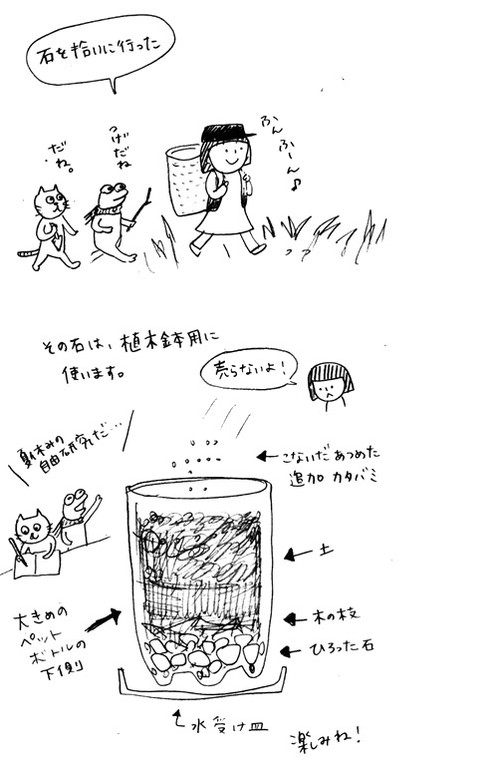 石を拾いに行った
だね。
つげだね
ふんふーん♪
その石は、植木鉢用に
使います。
売らないよ！
夏休みの
自由研究だ…
こないだあつめた
追加 カタバミ
土
木の枝
ひろった石
大きめの
ペット
ボトルの
下側
水受け皿
楽しみね！